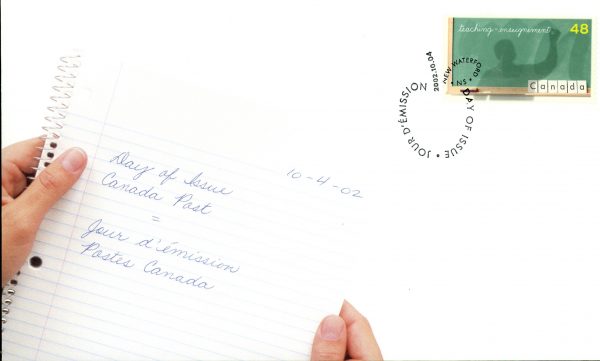 teaching-enseignement
48
Canada
2002.10.04
NEW WATERFORD
NS
DAY OF ISSUE • JOUR D'ÉMISSION
10-4-02
Day of Issue
Canada Post
=
Jour d'émission
Postes Canada